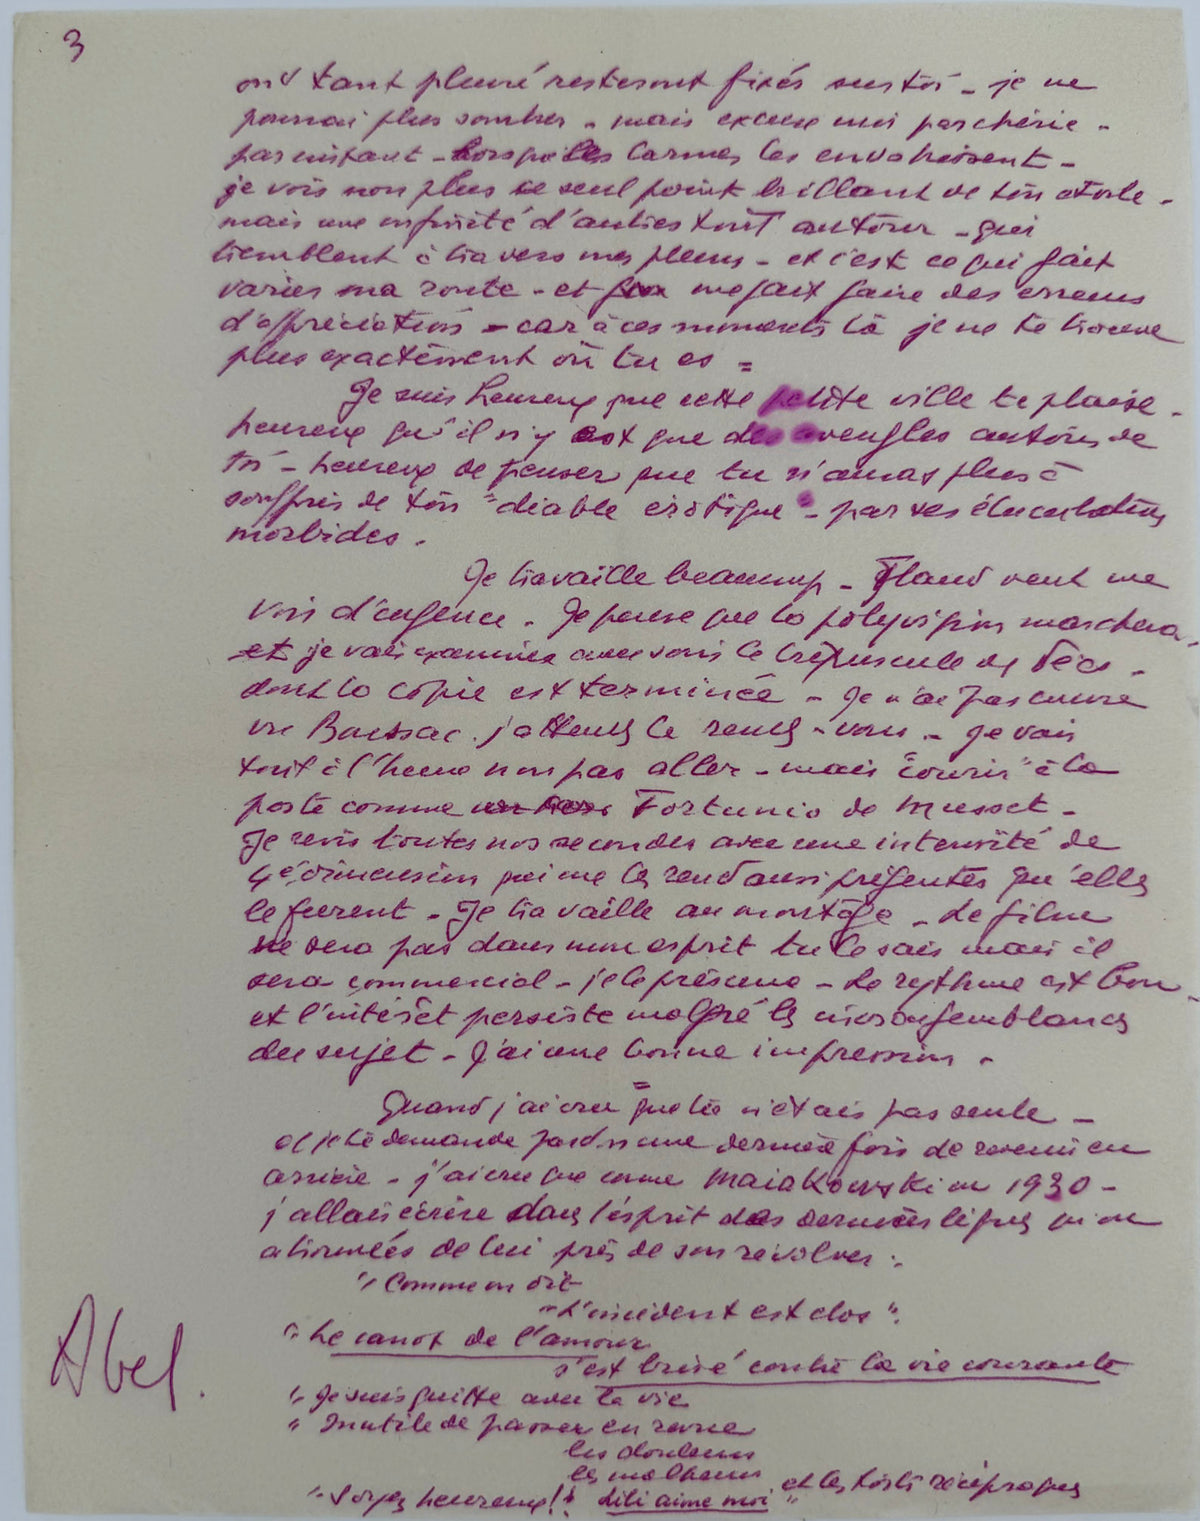 3
ont tant pleuré resteront fixés sur toi - je ne
pourrai plus sombrer - mais excuse moi par chérie -
par instant - lorsque les larmes les envahissent -
je vois non plus ce seul point brillant de ton étoile -
mais une infinité d'autres tout autour - qui
tremblent à travers mes pleurs - et c'est ce qui fait
varier ma route - et me fait faire des erreurs
d'appréciation - car à ces moments là je ne te trouve
plus exactement où tu es =
Je suis heureux que cette petite ville te plaise -
heureux qu'il n'y ait que des aveugles autour de
toi - heureux de penser que tu n'auras plus à
souffrir de ton "diable érotique" - par ses élucubrations
morbides.
Je travaille beaucoup - veut me
voir d'urgence. Je pense que la polyvision marchera
et je vais examiner avec soin le Crépuscule des Fées -
dont la copie est terminée - Je n'ai pas encore
vu Barssac. j'attends le rendez-vous - Je vais
tout à l'heure non pas aller - mais "courir" à la
poste comme Fortunio de Musset -
Je revis toutes nos secondes avec une intensité de
4e dimension qui me les rend aussi présentes qu'elles
le furent - Je travaille au montage - Le film
ne sera pas dans mon esprit tu le sais mais il
sera commercial - je le présume - Le rythme est bon -
et l'intérêt persiste malgré les invraisemblances
du sujet - J'ai une bonne impression -
=
Quand j'ai cru que tu n'étais pas seule -
et je te demande pardon une dernière fois de revenir en
arrière - j'ai cru que comme Maiakowski en 1930 -
j'allais écrire dans l'esprit des dernières lignes qu'on
a trouvées de lui près de son révolver :
"Comme on dit
"L'incident est clos".
"Le canot de l'amour
s'est brisé contre la vie courante
"Je suis quitte avec la vie
"Inutile de passer en revue
les douleurs
les malheurs
et les torts réciproques
"Soyez heureux!! Lili aime moi"
Abel.